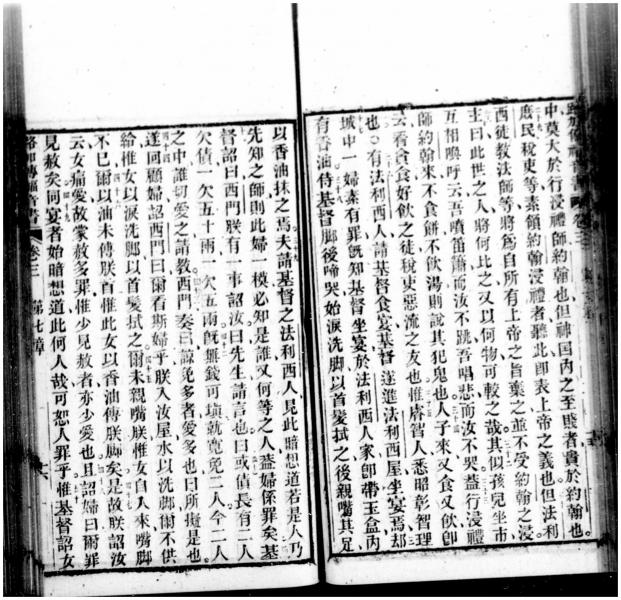 中莫大於行浸禮師約翰也但神国內之至賤者貴於約翰也
庶民稅吏等素領約翰浸禮者聽此卽表上帝之義也但法利
西徒教法師等將爲自所有上帝之旨棄之並不受約翰之浸
主曰此世之人將何比之又以何物可較之哉其似孩兒坐市
互相喚呼云吾噴笛簫而汝不跳吾唱悲而汝不哭蓋行浸禮
師約翰來不食餅不飲湯則說其犯鬼也人子來又食又飲卽
云看貪食好飲之徒稅吏惡流之友也惟睿智人悉昭彰智理
也○有法利西人請基督食宴基督遂進法利西屋坐宴焉却
城中一婦素有罪旣知基督坐宴於法利西人家卽帶玉盒內
有香油侍基督脚後啼哭始淚洗脚以首髮拭之後親嘴其足
以香油抹之焉夫請基督之法利西人見此暗想道若是人乃
先知之師則此婦一模必知是誰又何等之人蓋婦係罪矣基
督詔曰西門朕有一事詔汝曰先生請言也曰或債長有二人
欠債一欠五十兩一欠五兩旣無錢可塡就寬免二人今二人
之中誰切愛之請敎西門奏曰諒免多者愛多也曰所擬是也
遂囘顧婦詔西門曰爾看斯婦乎朕入汝屋水以洗脚爾不供
給惟女以淚洗脚以首髮拭之爾未親嘴朕惟女自入來嘴脚
不已爾以油未傅朕首惟此女以香油傅朕脚矣是故朕詔汝
云女痛愛故蒙赦多罪惟少見赦者亦少愛也且詔婦曰爾罪
見赦矣同宴者始暗想道此何人哉可恕人罪乎惟基督詔女
路加傳福音書 卷三 第七章 十六